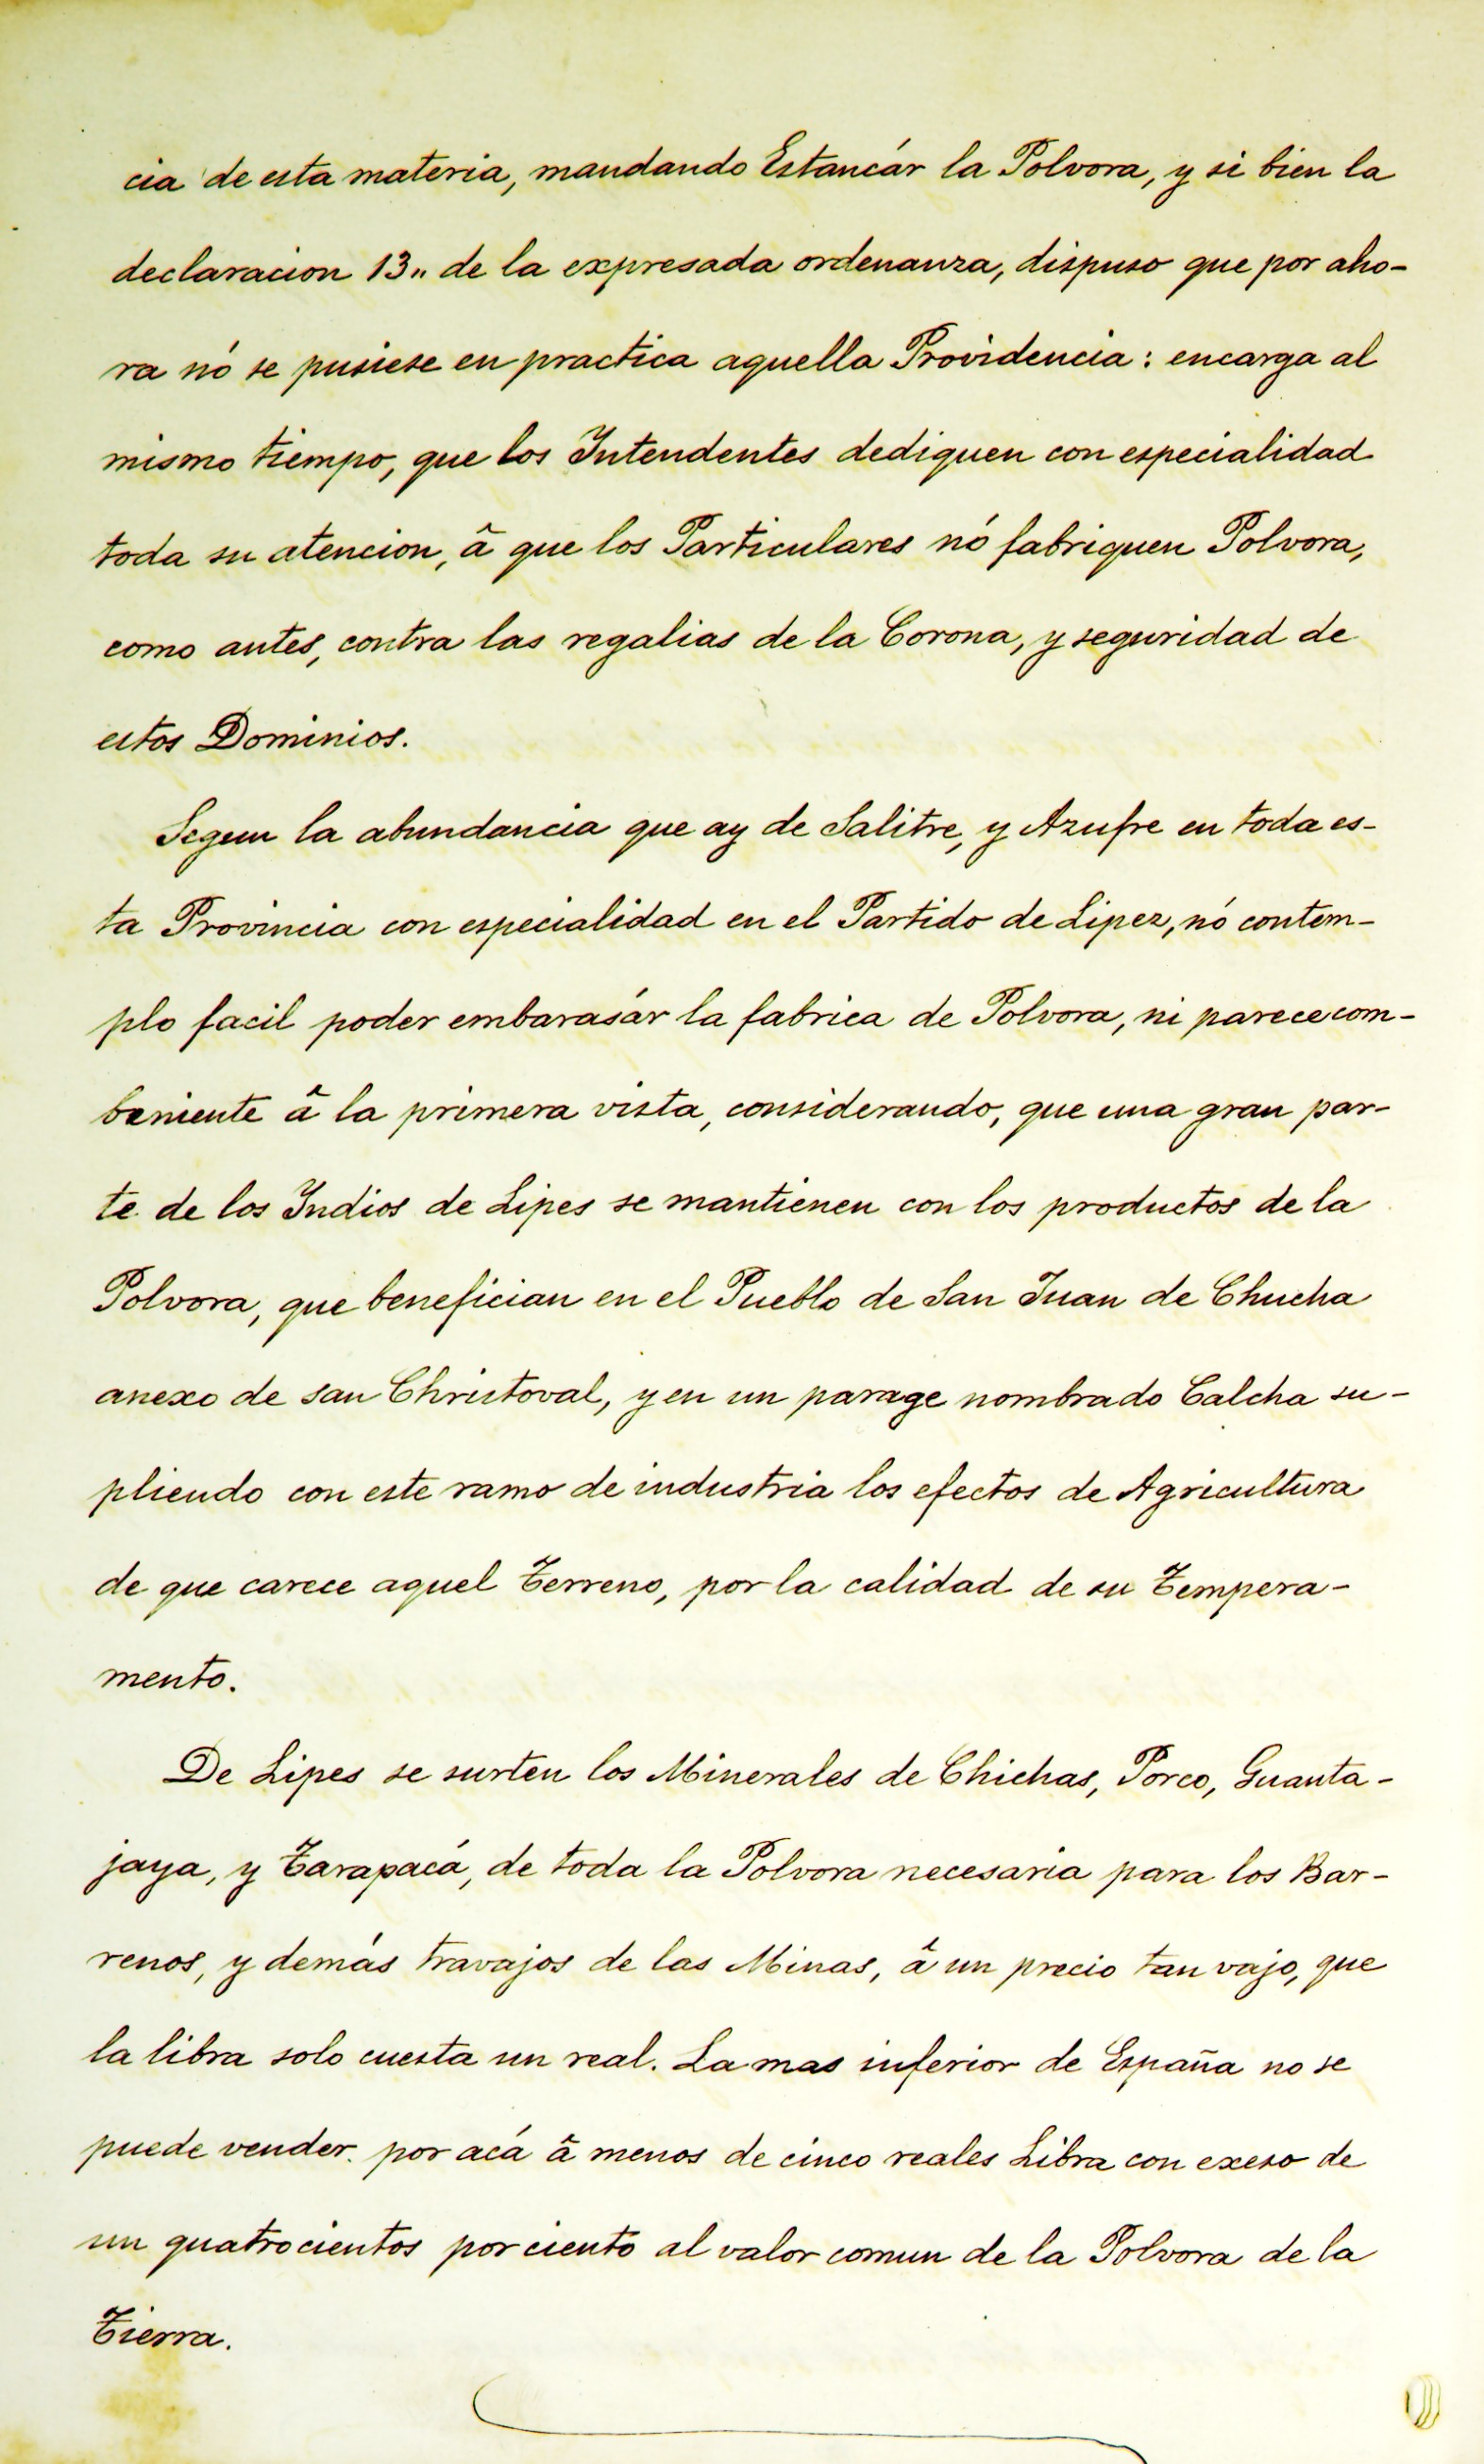 cia de esta materia, mandando Estancár la Polvora, y si bien la
declaracion 13,, de la expresada ordenanza, dispuso que por aho-
ra nó se pusiese en practica aquella Providencia: encarga al
mismo tiempo, que los Intendentes dediquen con especialidad
toda su atencion, â que los Particulares nó fabriquen Polvora,
como antes, contra las regalias de la Corona, y seguridad de
estos Dominios.
Segun la abundancia que ay de Salitre, y Azufre en toda es-
ta Provincia con especialidad en el Partido de Lipez, nó contem-
plo facil poder embarasár la fabrica de Polvora, ni parece com-
beniente â la primera vista, considerando, que una gran par-
te de los Indios de Lipes se mantienen con los productos de la
Polvora, que benefician en el Pueblo de San Juan de Chucha
anexo de san Christoval, y en un parage nombrado Calcha su-
pliendo con este ramo de industria los efectos de Agricultura
de que carece aquel Terreno, por la calidad de su Tempera-
mento.
De Lipes se surten los Minerales de Chichas, Porco, Guanta-
jaya, y Tarapacá, de toda la Polvora necesaria para los Bar-
renos, y demás travajos de las Minas, â un precio tan vajo, que
la libra solo cuesta un real. La mas inferior de España no se
puede vender por acá â menos de cinco reales Libra con exeso de
un quatrocientos por ciento al valor comun de la Polvora de la
Tierra.